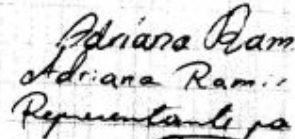 Adriana Ram
Adriana Rami
Representante pa